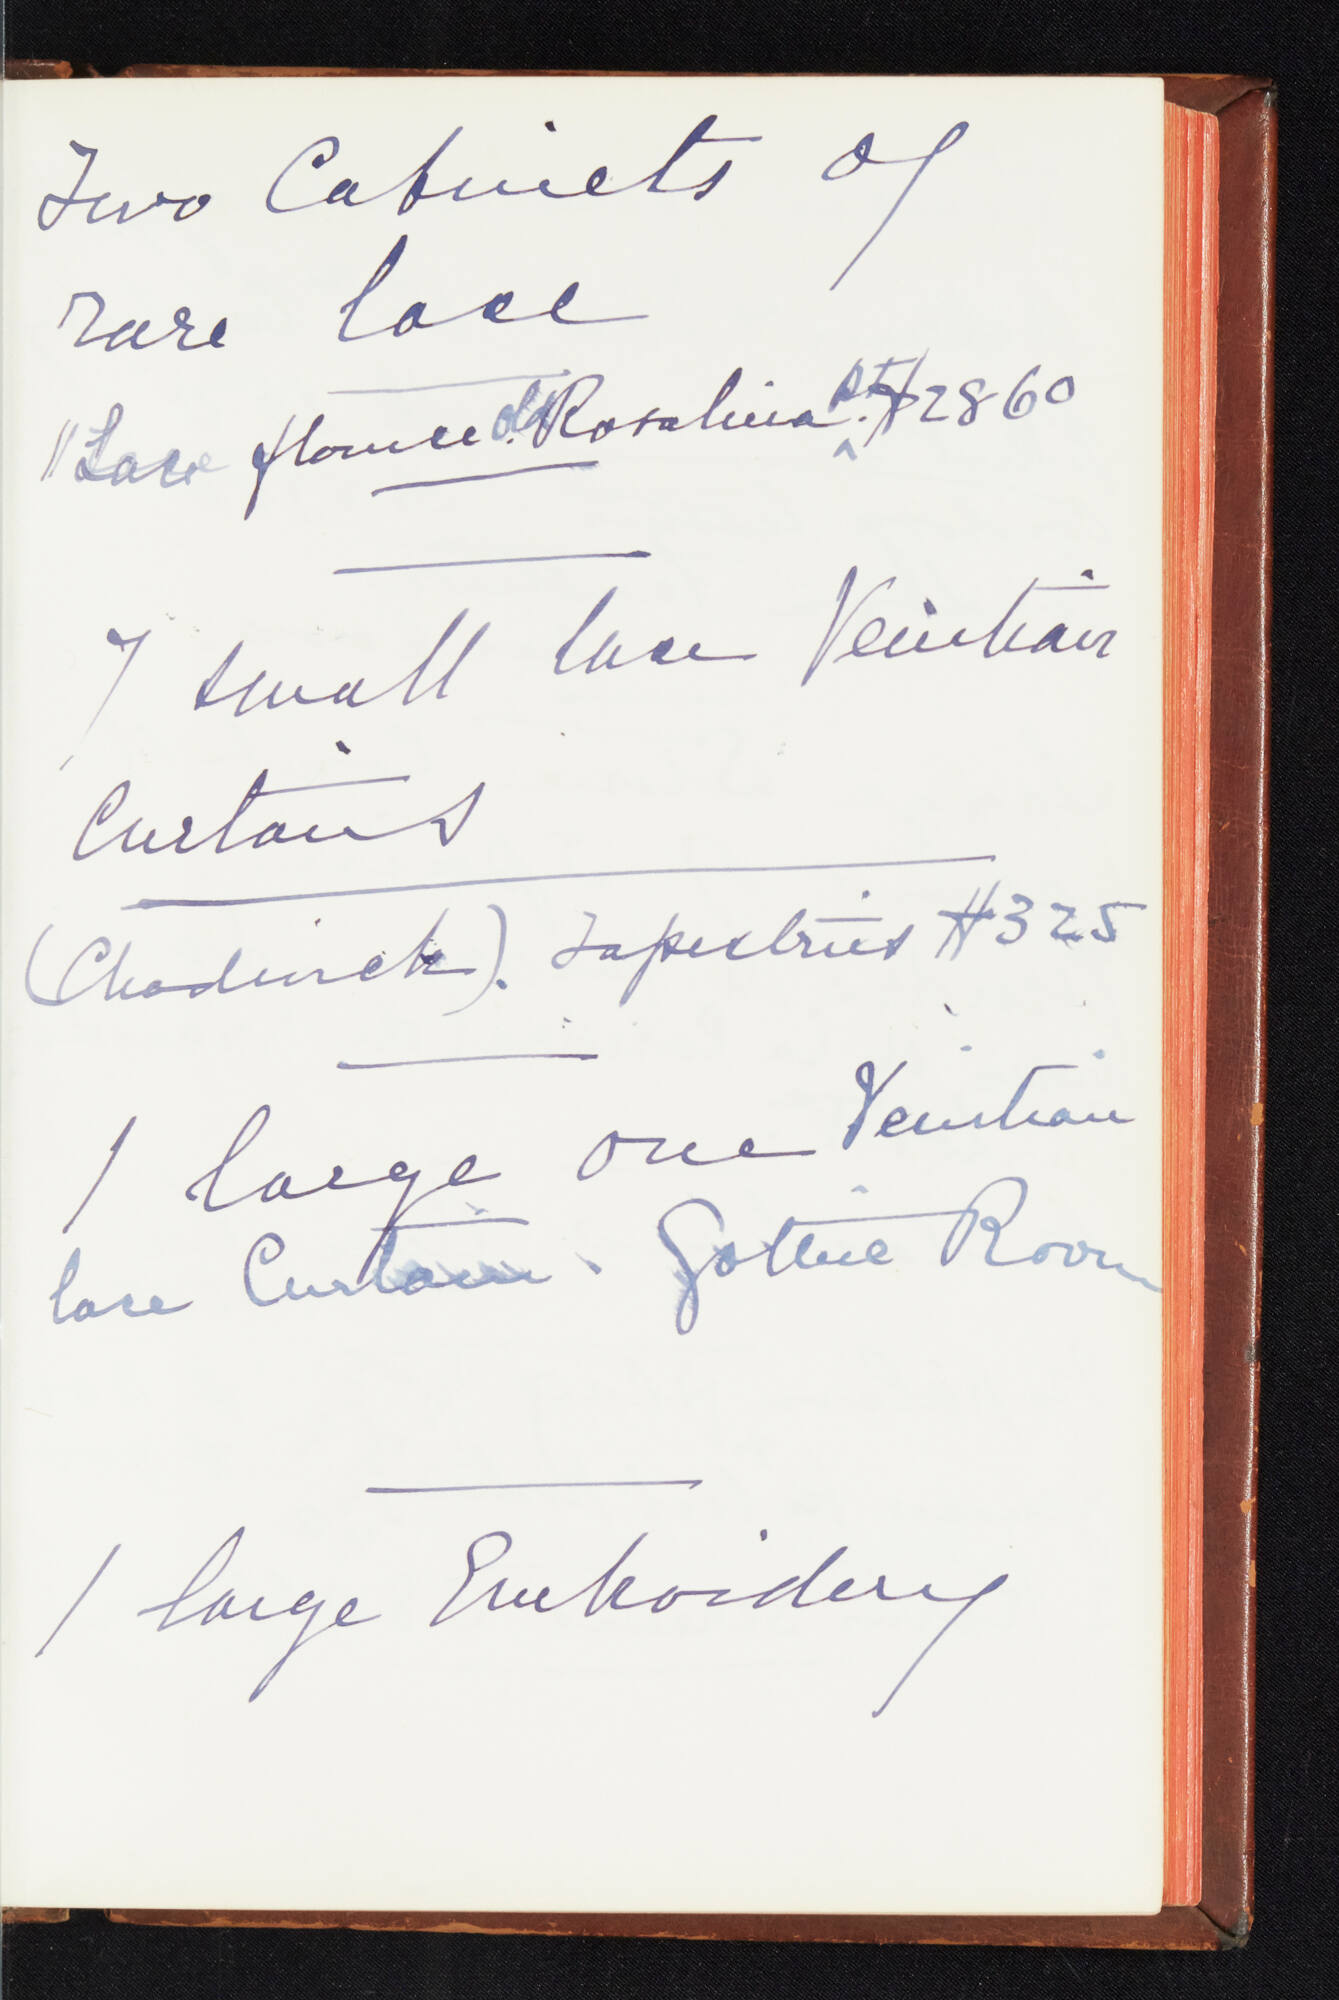 Two Cabinets of
rare lace
"Lace flounce old Rosalina pt. #2860
7 small lace Venitian
Curtains
(Chadwick). Tapestries #325
1 large one Venitian
lace Curtain. Gothic Room
1 large Embroidery